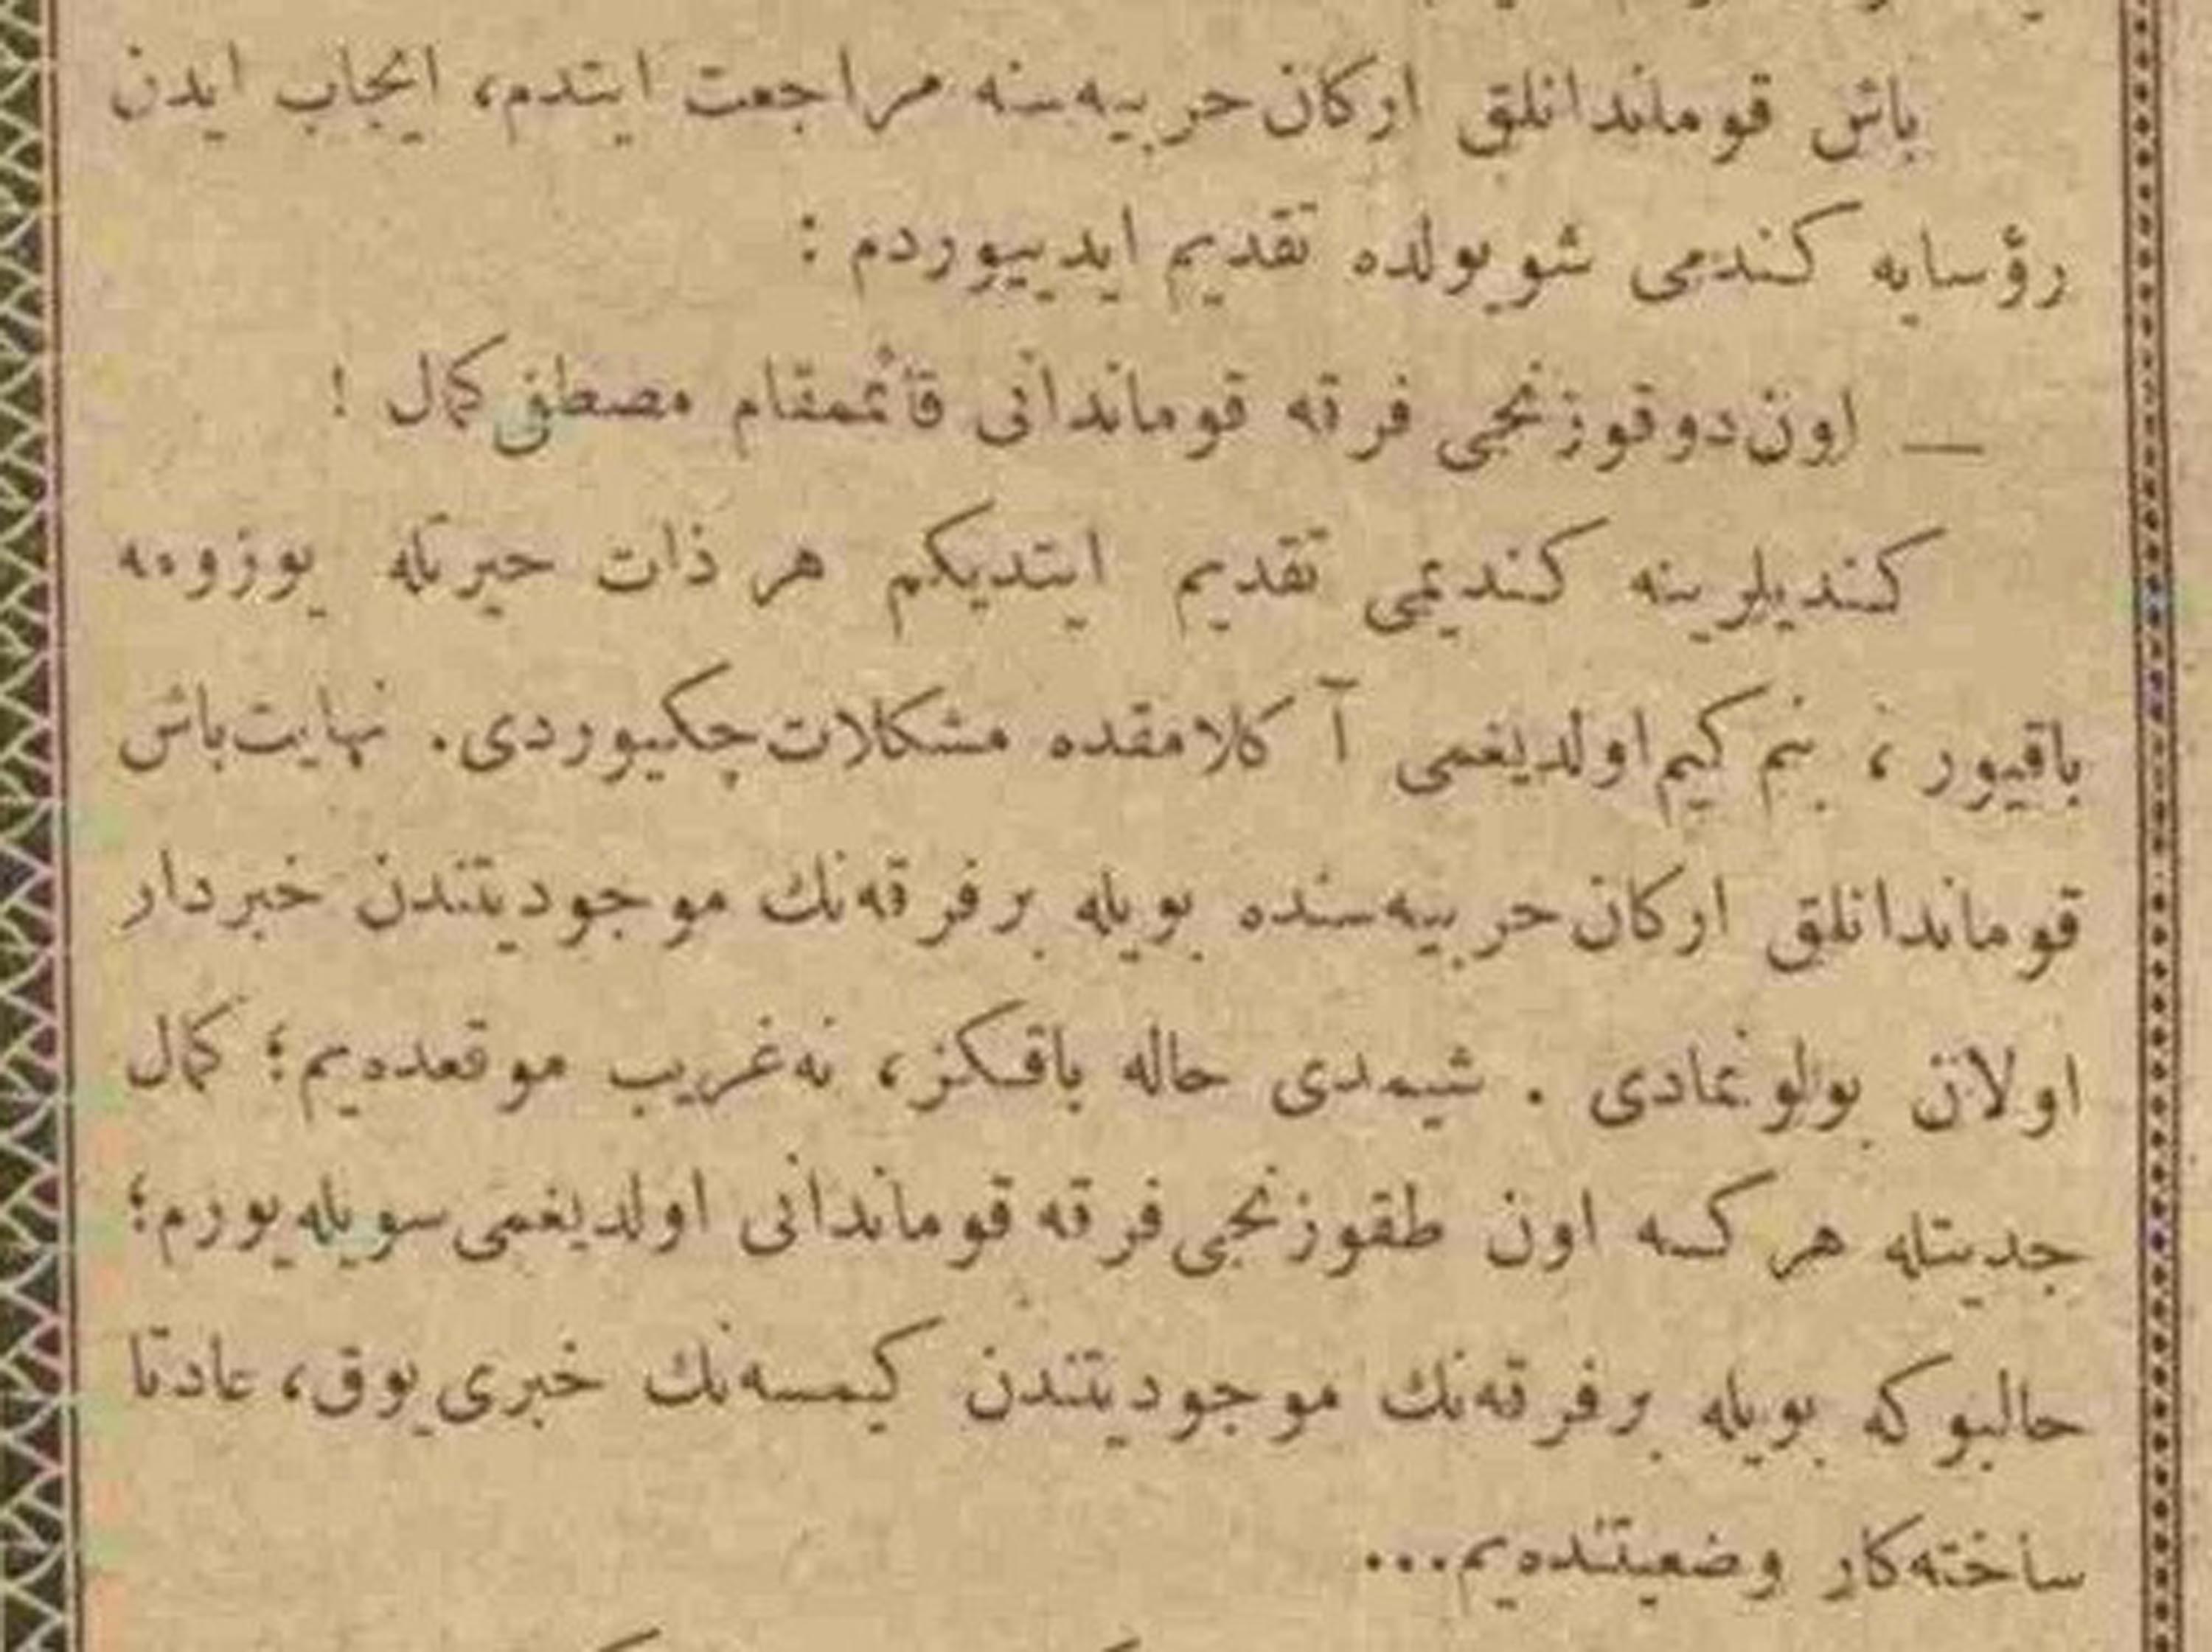 باش قوماندانلق اركان حربیه‌سنه مراجعت ایتدم، ایجاب ایدن
رؤسایه كندمی شو یولده تقدیم ایدییوردم :
— اون دوقوزنجی فرقه قوماندانی قائممقام مصطفی كمال !
كندیلرینه كندیمی تقدیم ایتدیكم هر ذات حیرتله یوزومه
باقییور ، بنم كیم اولدیغمی آ كلامقده مشكلات چكییوردی. نهایت باش
قوماندانلق اركان حربیه‌سنده بویله بر فرقه‌نك موجودیتندن خبردار
اولان بولونمادی . شیمدی حاله باقكز، نه غریب موقعده‌یم؛ كمال
جدیتله هر كسه اون طقوزنجی فرقه قوماندانی اولدیغمی سویله‌یورم؛
حالبوكه بویله بر فرقه‌نك موجودیتندن كیمسه‌نك خبری یوق، عادتا
ساخته‌كار وضعیتنده‌یم...